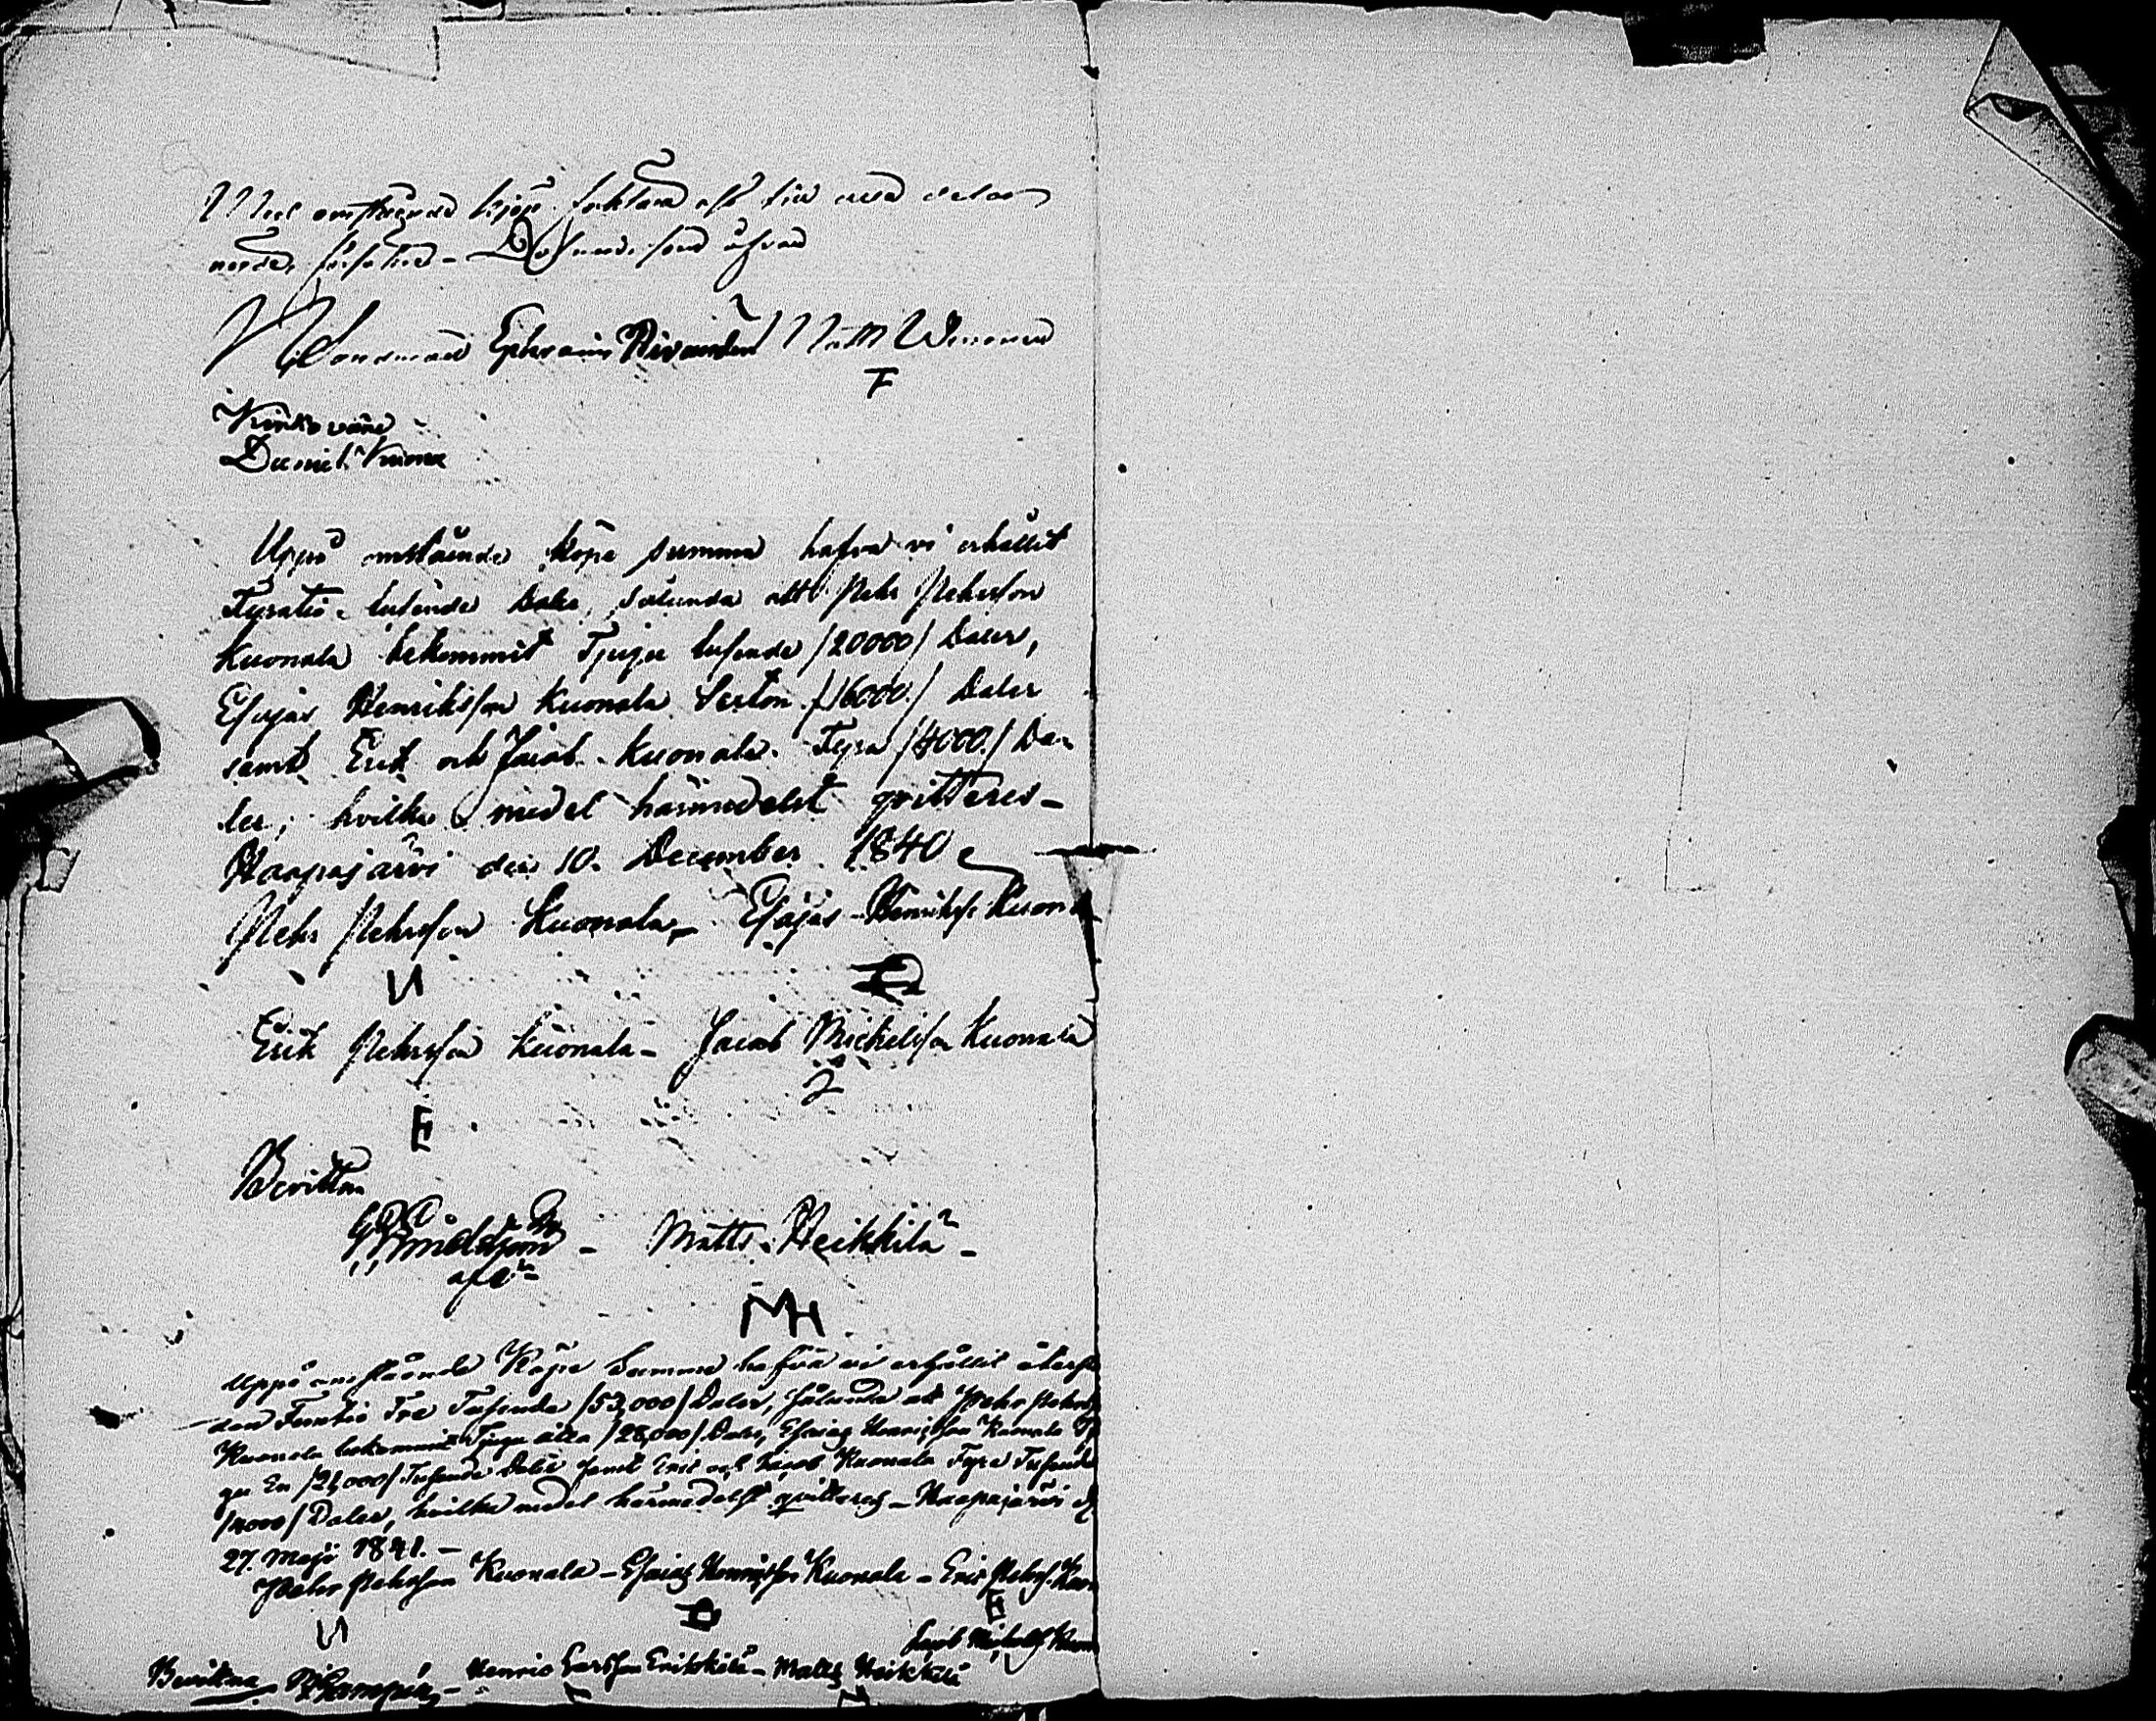 Med omstående Kjöp förklara oss till alla delar
nöjde, försäkra - Dag som ofvan
Ephraim Matts
F
Daniel
Uppå omstående köpe summa hafva vi erhållit
Fyratio tusende Daler, sålunda att Pehr Pehrsson
Kuonala bekommit Tjugu tusende /20000/ Daler,
Esajas Henriksson Kuonala Sexton /16000/ Daler
samt Erik och Jacob Kuonala Fyra /4000/ Da-
ler, hvilka medel härmedelst qvitteras -
Haapajärvi den 10. December 1840
Pehr Pehrsson Kuonala - Esajas Henrikss. Kuona
И
Erik Pehrsson Kuonala - Jacob Michelsson Kuonala
2
E
Bevittna
Matts Heikkilä -
MH
Uppå omstående Köpe Summa hafva vi erhållit återst
den Femtio Tre Tusende /53,000/ Daler, sålunda att Pehr Pehrss
Kuonala bekommit Tjugu åtta /28,000/ Daler, Esaias Henricsson Kuonala Tj
gu En /21,000/ Tusende Daler samt Eric och Jacob Kuonala Fyra Tusende
/4000/ Daler, hvilka medel härmedelst qvitteras - Haapajärvi d.
27. Maji 1841. -
Pehr Pehrsson Kuonala - Esaias Henricsson Kuonala - Eric Pehrss. Kuon
И E
Jacob Michelss Kuon
Bevittna Henric Larsson Erikkilä - Matts Heikkilä